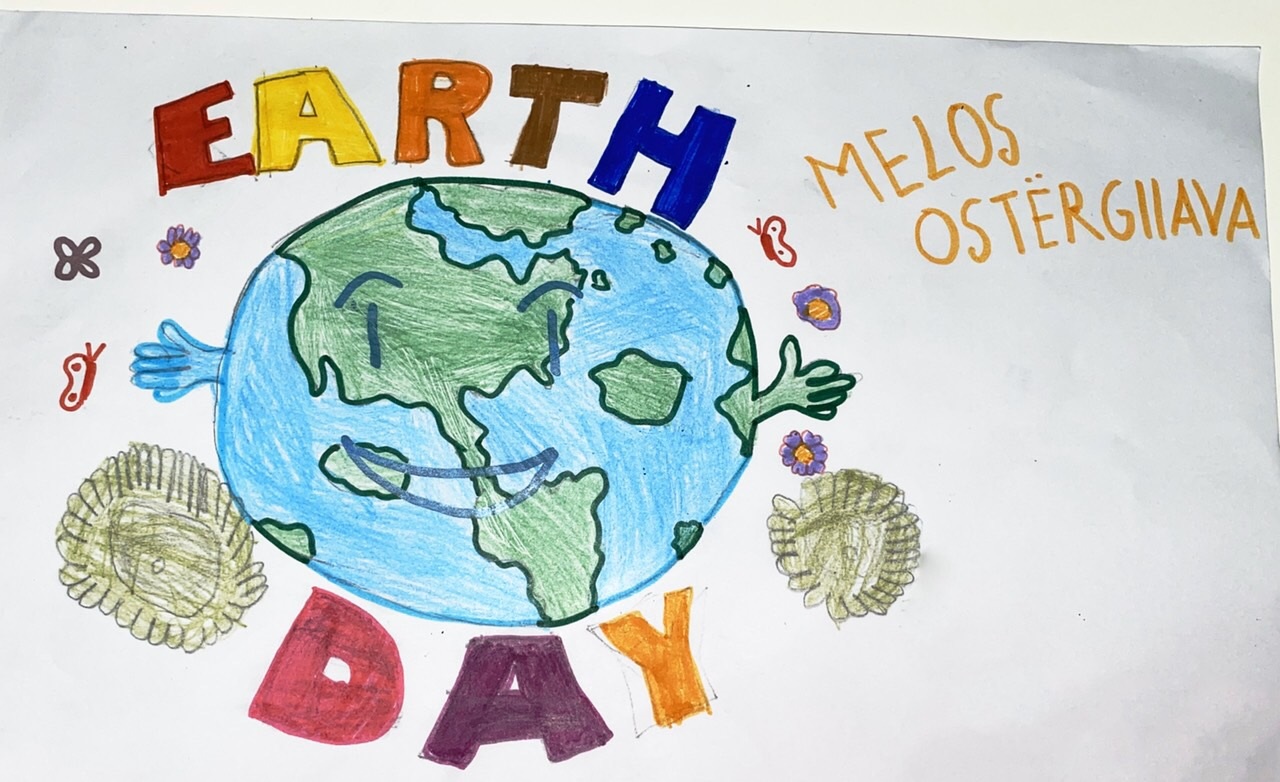 EARTH
MELOS
OSTËRGIIAVA
DAY